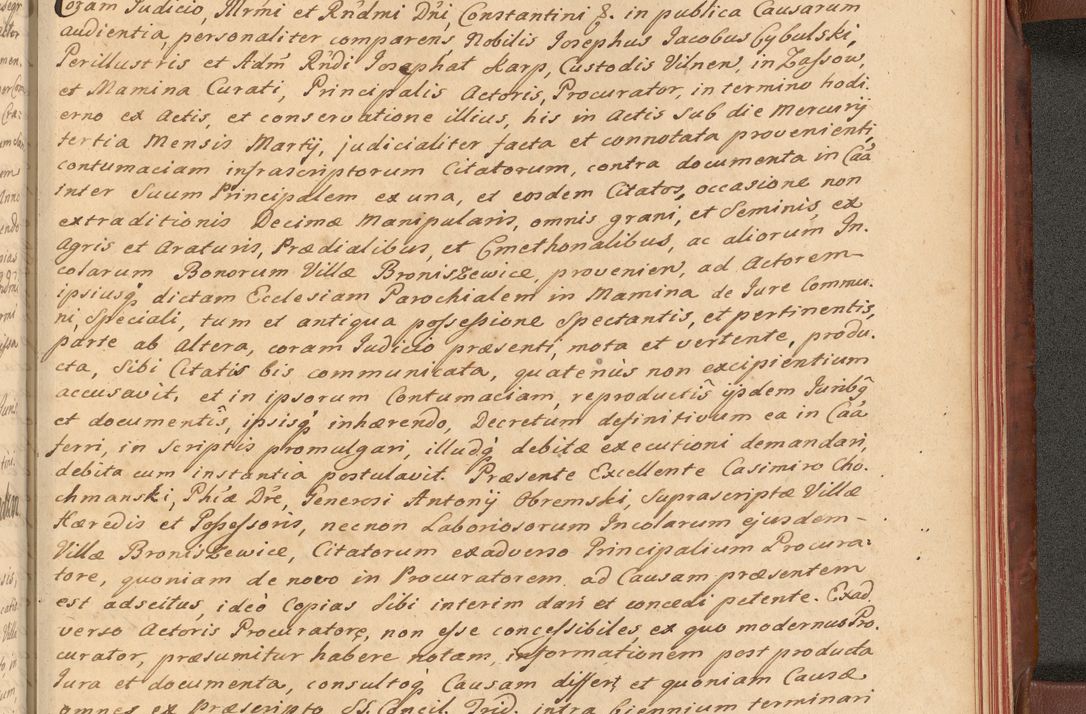 Coram Judicio, Illrmi et Rndmi Dni, Constantini &. in publica Causarum
audientia, personaliter comparens, Nobilis Josephus Jacobus Cybulski,
Perillustris et Adm Rndi Josephat Karp, Custodis Vilnen, in Zassow,
et Mamina Curati, Principalis Actoris, Procurator, in termino hodi
erno ex Actis, et conservatione illius, his in Actis sub die Mercurij
tertia Mensis Martij, judicialiter facta et connotata provenienti,
contumaciam infrascriptorum Citatorum, contra documenta in Caa
inter Suum Principalem ex una, et eosdem Citatos, occasione non
extraditionis Decimæ Manipularis, omnis grani, et Seminis, ex
agris et araturis, Prædialibus, et Cmethonalibus, ac aliorum In-
colarum Bonorum Villæ Broniszewice, provenien, ad Actorem
ipsiusq, dictam Ecclesiam Parochialem in Mamina de Jure Commu-
ni, Speciali, tum et antiqua possessione Spectantis, et pertinentis,
parte ab altera, coram Judicio præsenti, mota et vertente, produ-
cta, Sibi Citatis bis communicata, quatenus non excipientium
accusavit, et in ipsorum Contumaciam, reproductis ijsdem Juribq
et documentis, ipsisq inhærendo, Decretum definitivum ea in Caa
ferri, in Scriptis promulgari, illudq debitæ executioni demandari,
debita cum instantia postulavit. Præsente Excellente Casimiro Cho-
chmanski, Phiæ Dre, Generosi Antonij Obremski, Suprascriptæ Villæ
Hæredis et Possessoris, necnon Laboriosorum Incolarum ejusdem
Villæ Broniszewice, Citatorum ex adverso Principalium Procura-
tore, quoniam de novo in Procuratorem ad Causam præsentem
est adscitus, ideo Copias Sibi interim dari et concedi petente. Exad
verso Actoris Procuratore, non esse concessibiles, ex quo modernus Pro-
curator, præsumitur habere notam, informationem post producta
Jura et documenta, consultoq Causam differt, et quoniam Causæ
omnes ex Præscripto SS. Concil. Trid. intra biennium terminari